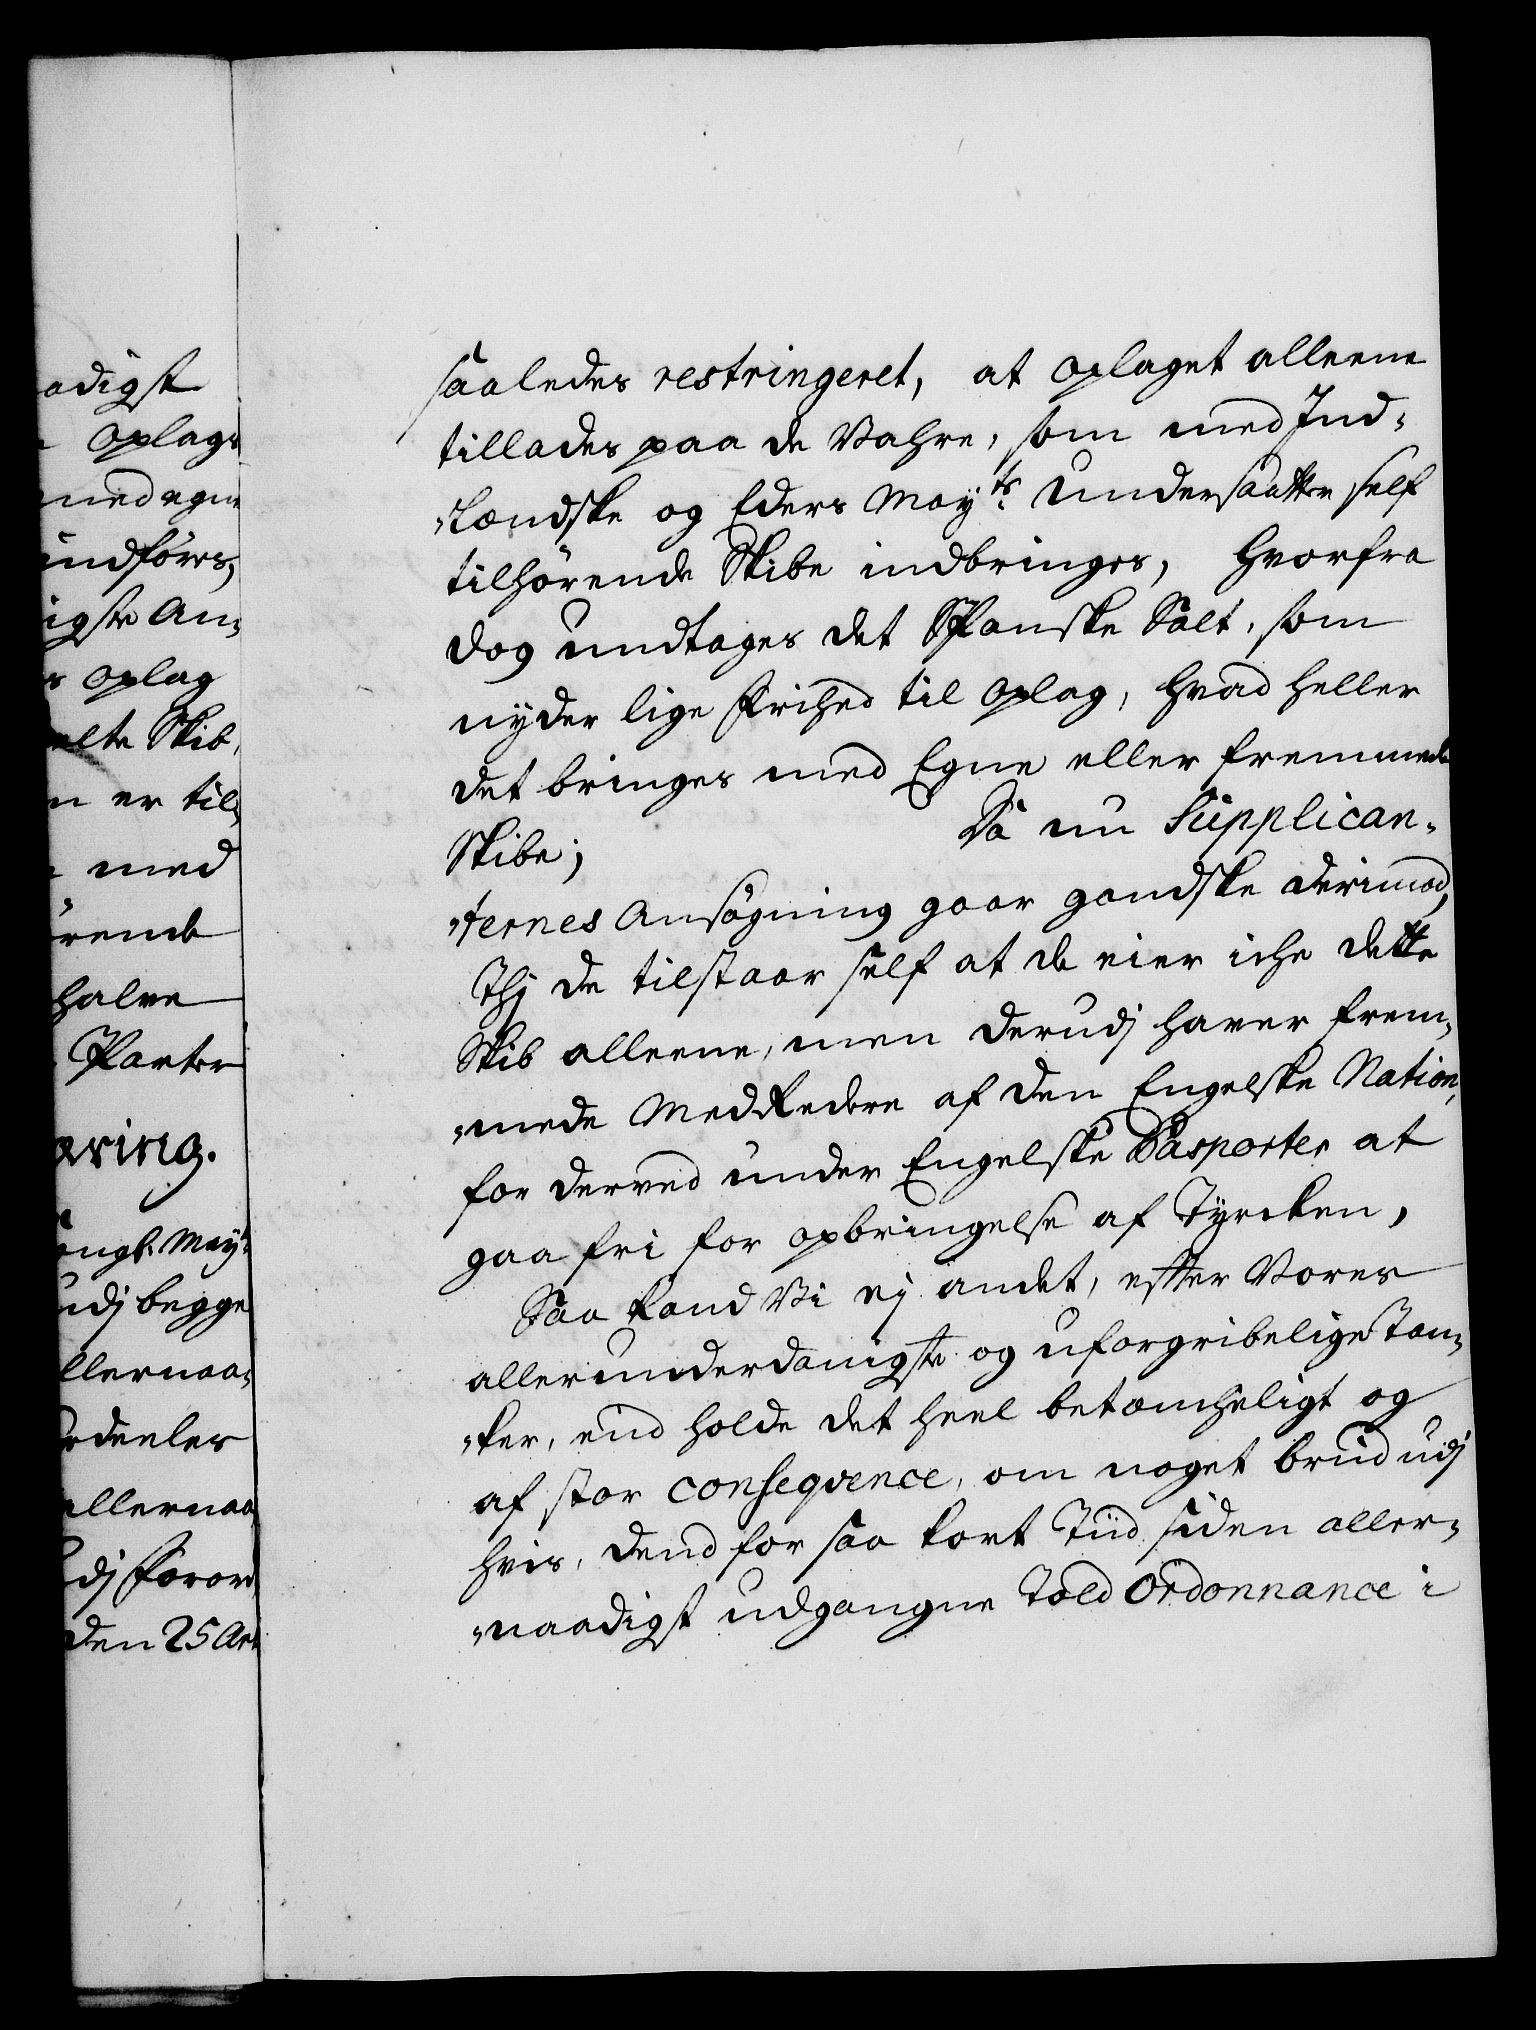 adigst
oplag-
med egne
indføres,
igste An-
s oplag
elte Skib,
n er til-
med
ørende
halve
Parter
æring.
ongl. May:
udj begge
llernaa-
deeles
allernaa
dj Foror
den 25 Art
saaledes restringeret, at oplaget alleene
tillades paa de Vahre, som med Ind-
-lændske og Eders Mayts. Undersaatter self
tilhørende Skibe indbringes, hvorfra
dog undtages det Spanske Salt, som
nyder lige Frihed til oplag, hvad heller
det bringes med Egne eller fremmede
Skibe; Da nu Supplican-
-ternes Ansøgning gaar gandske derimod,
Thj de tilstaar self at de eier iche dette
Skib alleene, men derudj haver frem-
-mede Medredere af den Engelske Nation,
for derved under Engelske Pasporter at
gaa fri for opbringelse af Tyrcken,
Saa kand Vi ej andet, efter Vores
allerunderdanigste og uforgribelige Tan-
-ker, end holde det heel betæncheligt og
af stor conseqvence, om noget brud udj
hvis, dend for saa kort Tiid siden aller-
-naadigst udgangne Told Ordonnance i